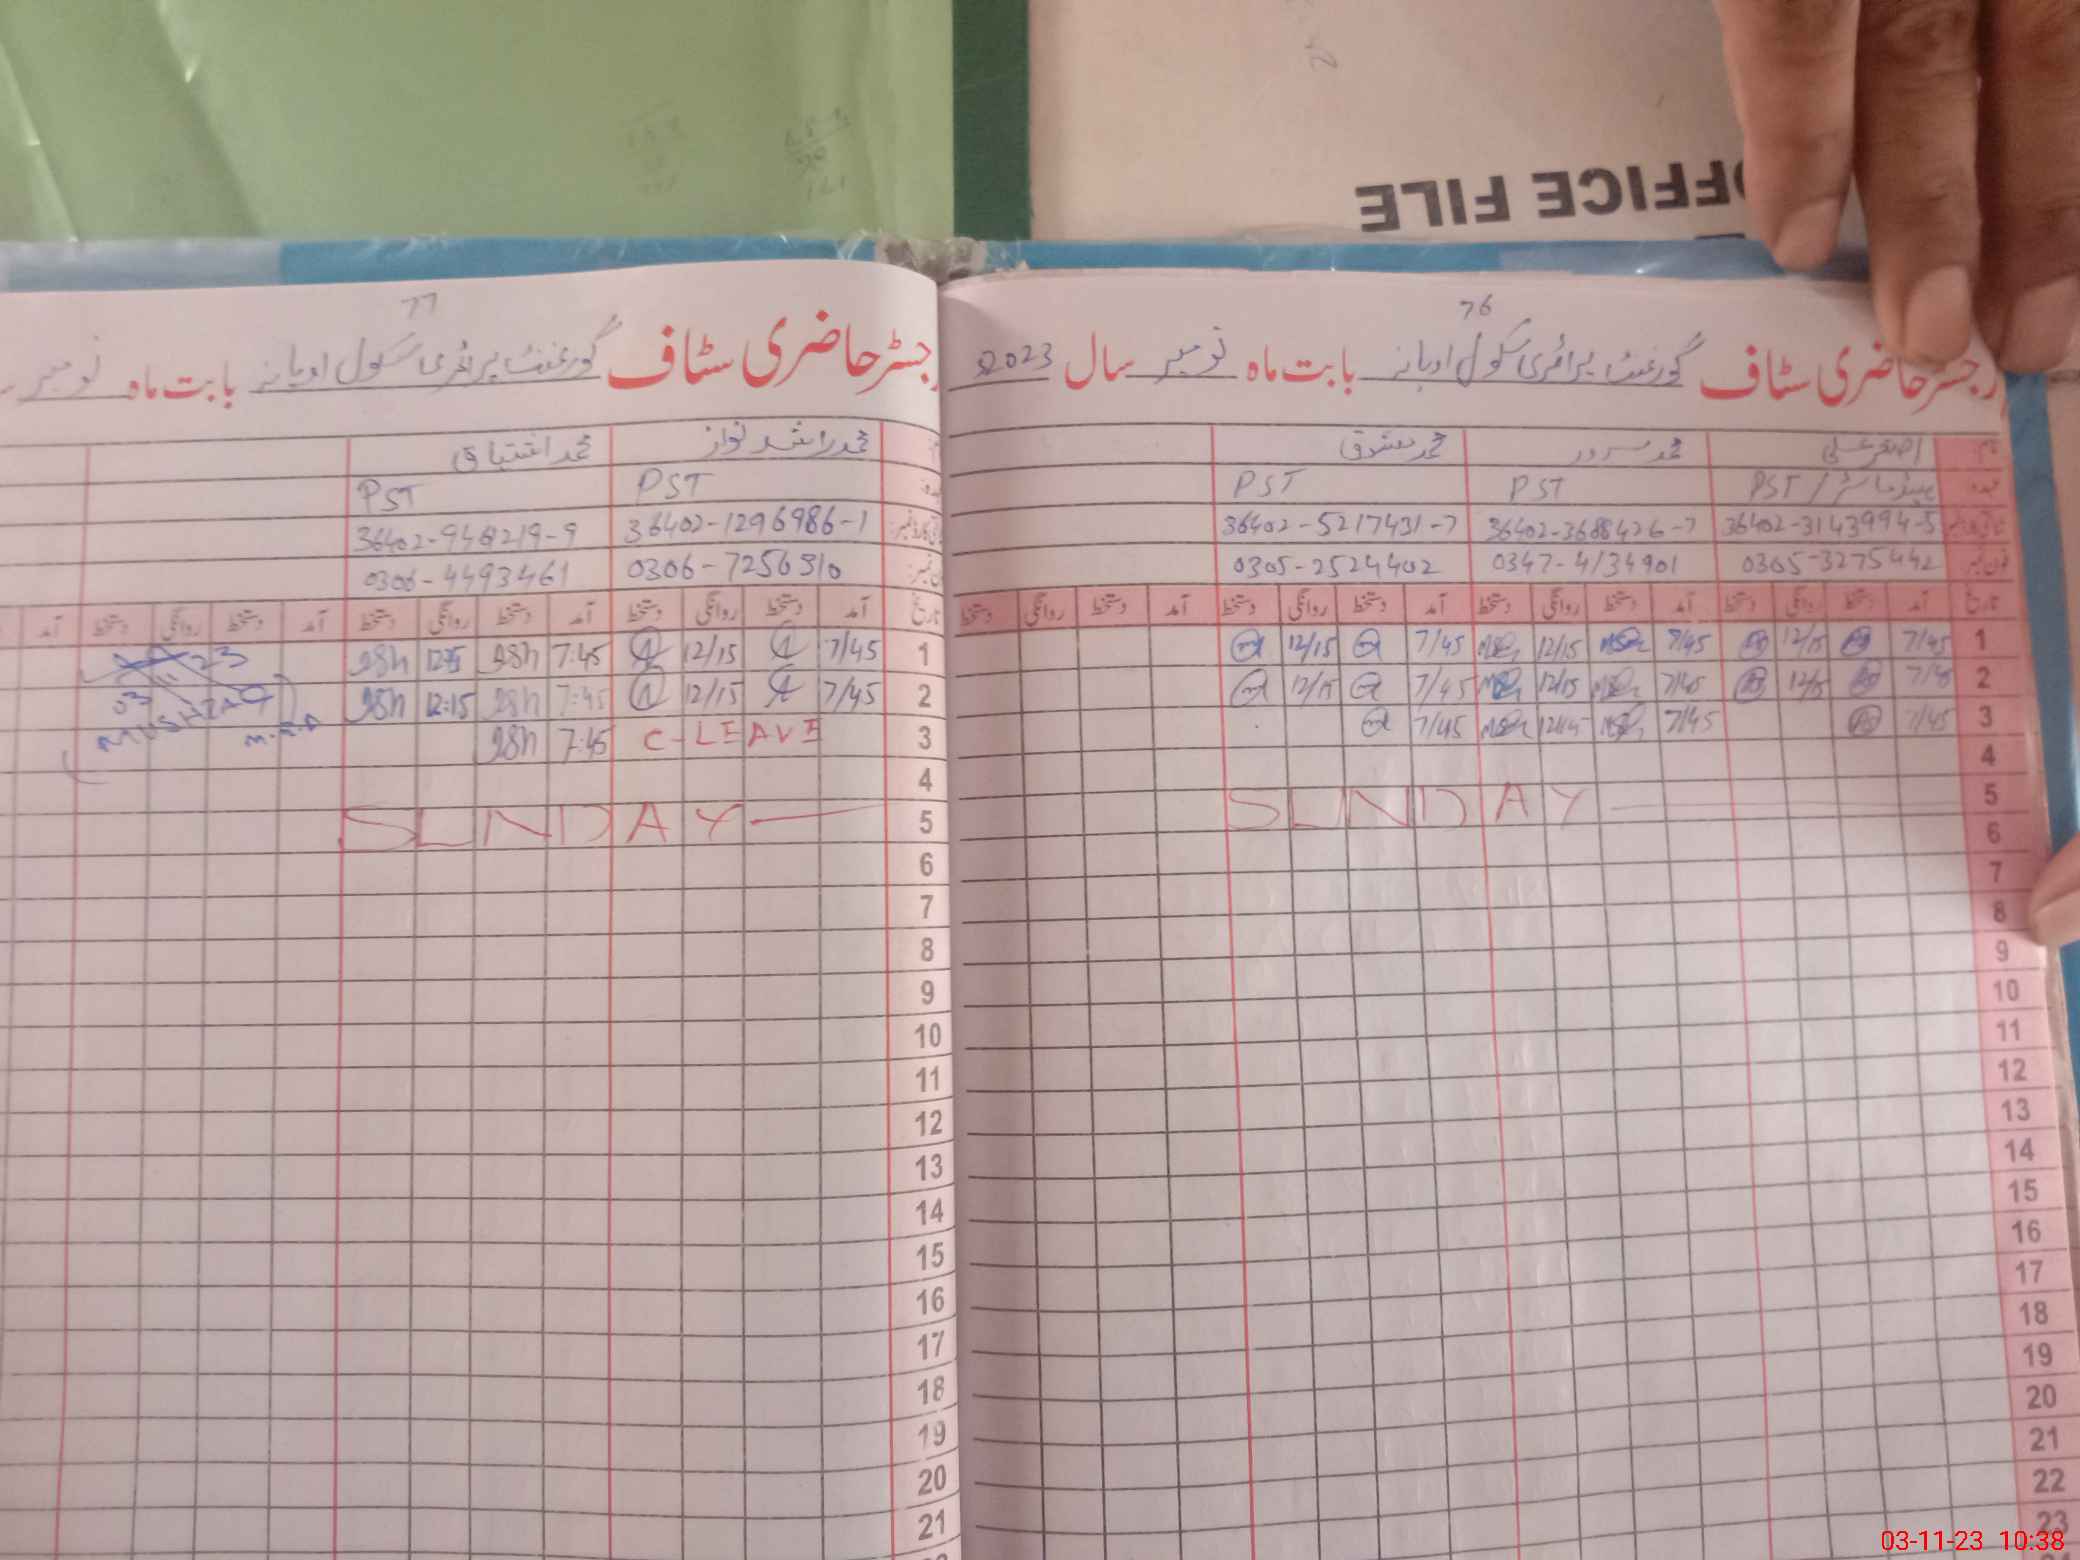 OFFICE FILE
76
رجسٹر حاضری سٹاف گورنمنٹ پرائمری سکول اوبانہ بابت ماہ نومبر سال 2023
اصغر علی محمد سرور محمد معشوق
PST / ہیڈ ماسٹر PST PST
36402-3143994-5 36402-3688426-7 36402-5217431-7
0305-3275442 0347-4134901 0305-2524402
تاریخ آمد دستخط روانگی دستخط آمد دستخط روانگی دستخط آمد دستخط روانگی دستخط آمد دستخط روانگی دستخط
1 7/45 12/15 7/45 12/15 7/45 12/15
2 7/45 12/15 7/45 12/15 7/45 12/15
3 7/45 7/45 7/45
4
5 SUNDAY
6
7
8
9
10
11
12
13
14
15
16
17
18
19
20
21
22
23
77
رجسٹر حاضری سٹاف گورنمنٹ پرائمری سکول اوبانہ بابت ماہ نومبر
محمد راشد نواز محمد اشتیاق
PST PST
36402-1296986-1
0306-7256310 0306-4493461
تاریخ آمد دستخط روانگی دستخط آمد دستخط روانگی دستخط آمد دستخط روانگی دستخط آمد
1 7/45 12/15 7:45
2 7/45 12/15 7:45 12:15
3 C-LEAVE 7:45
4
5 SUNDAY
6
7
8
9
10
11
12
13
14
15
16
17
18
19
20
21
MUSHTAQ
03-11-23 10:38